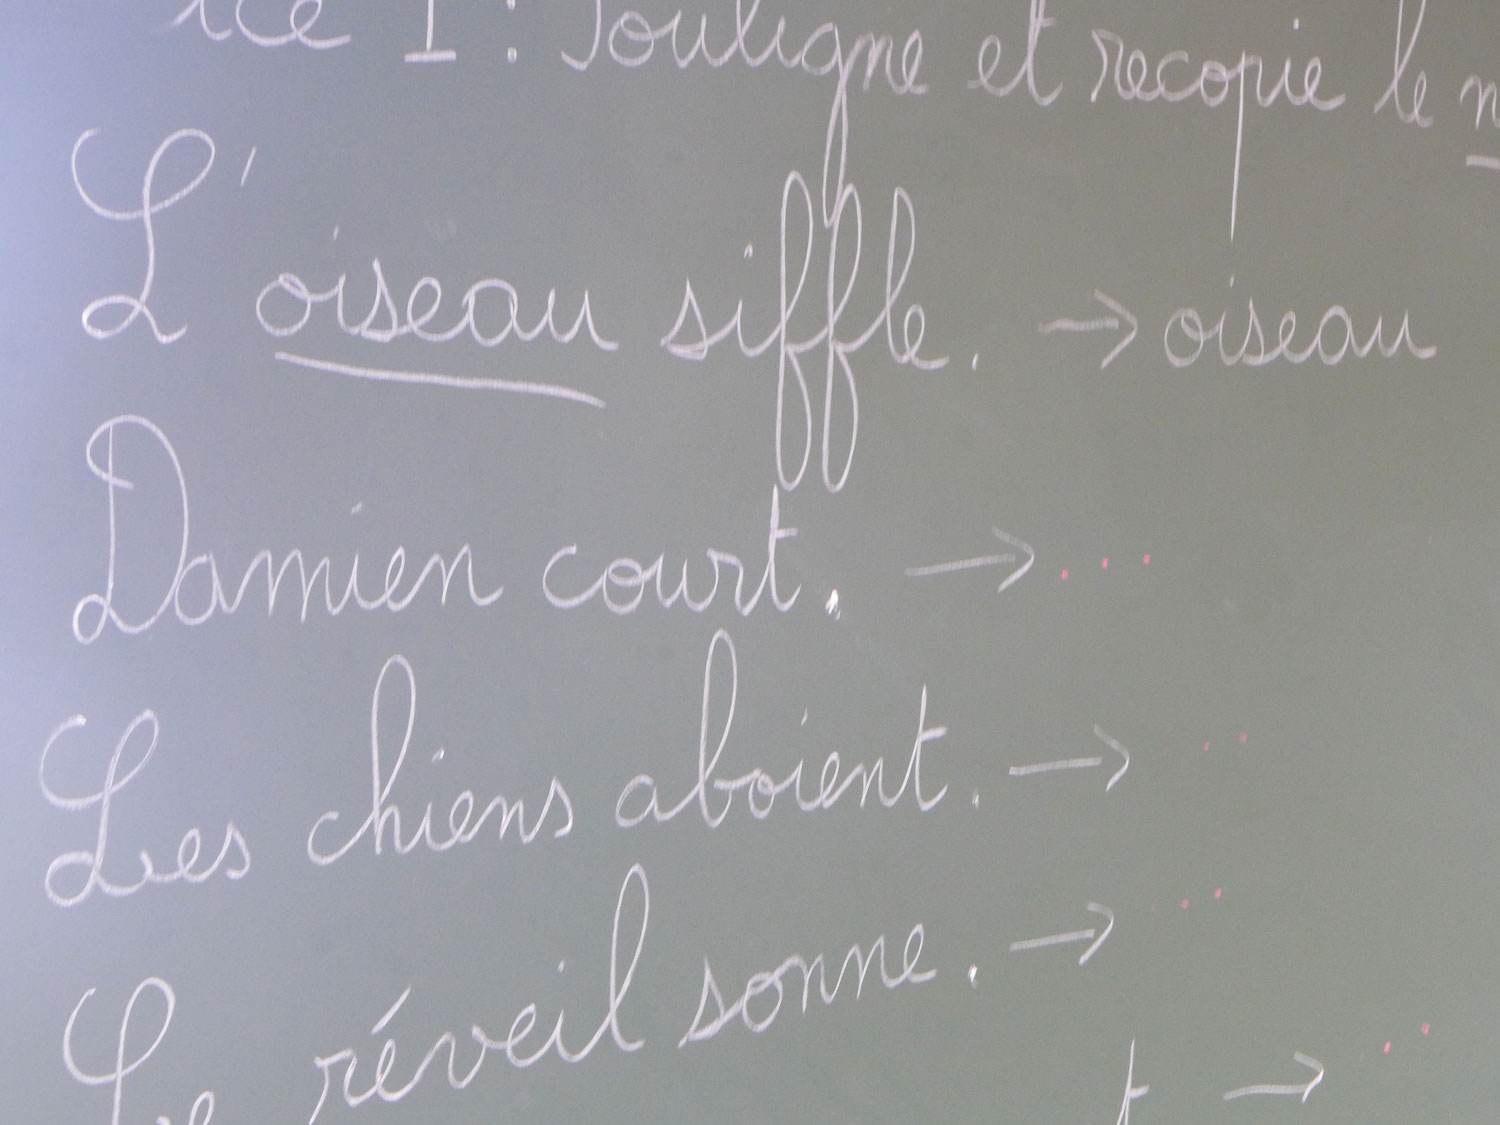 ice 1 : Souligne et recopie le n
L'oiseau siffle. → oiseau
Damien court. → ...
Les chiens aboient. → ..
Le réveil sonne. → ..
t → ..